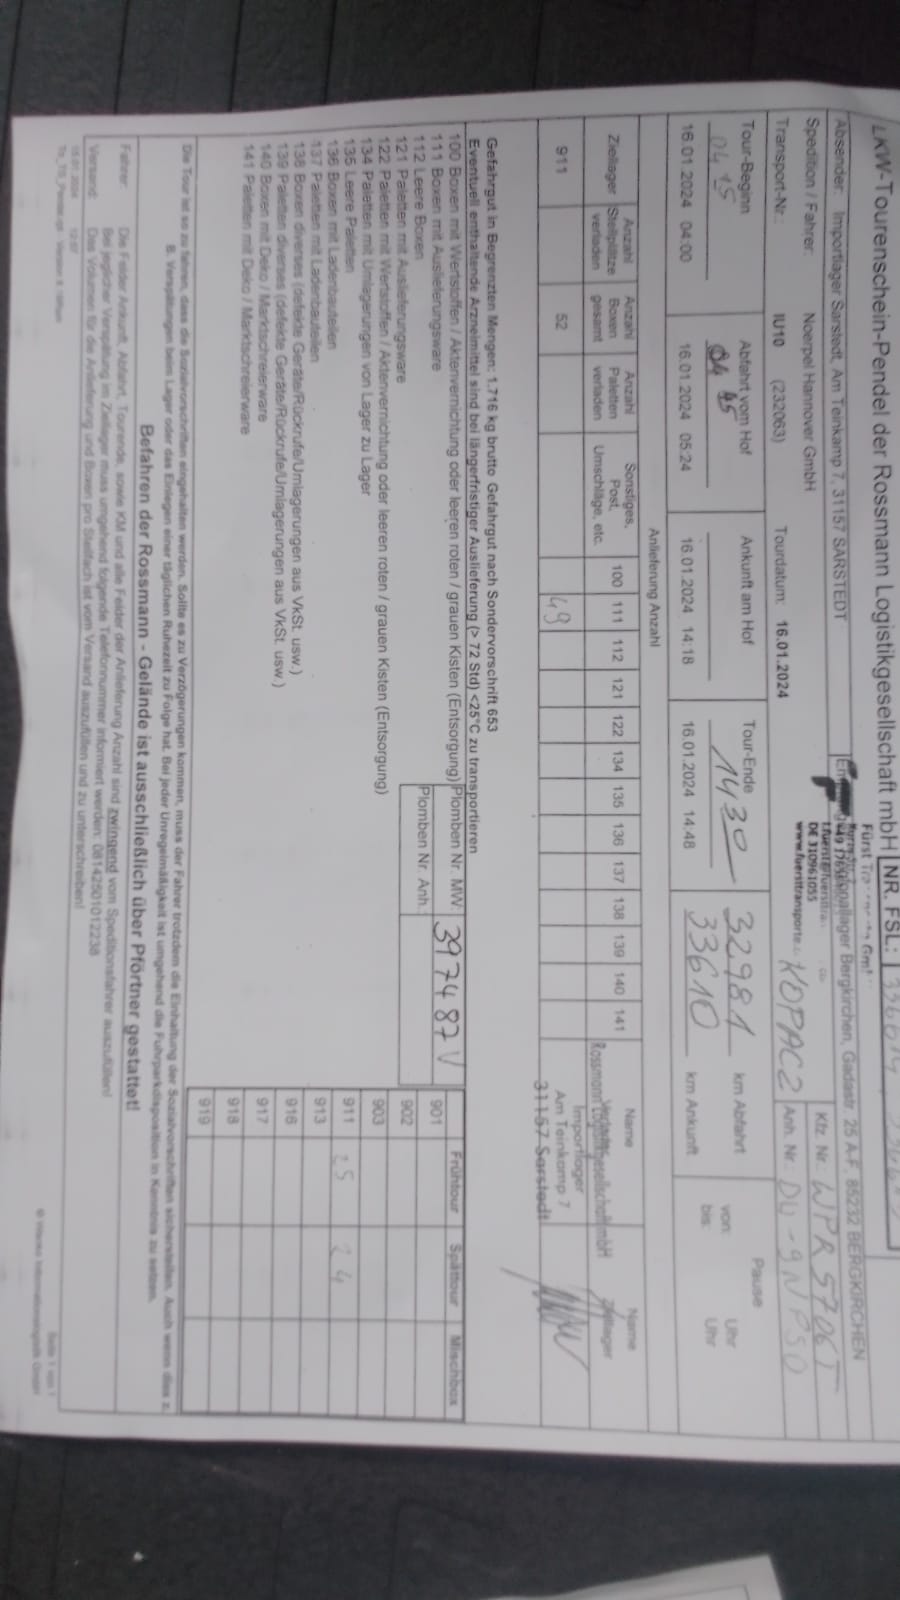 LKW-Tourenschein-Pendel der Rossmann Logistikgesellschaft mbH NR. FSL:
Absender: Importlager Sarstedt, Am Teinkamp 7, 31157 SARSTEDT
Bergkirchen, Gadastr. 25 A-F, 85232 BERGKIRCHEN
DE 310961055
Spedition / Fahrer: Noerpel Hannover GmbH
KOPACZ
Kfz. Nr.: WPR 5706T
Transport-Nr.: IU10 (232063) Tourdatum: 16.01.2024
Anh. Nr.: DW-9NP50
Tour-Beginn Abfahrt vom Hof Ankunft am Hof Tour-Ende
04 15 04 45 1430 32981 km Abfahrt
33610 km Ankunft
Pause
von: Uhr
bis: Uhr
16.01.2024 04:00 16.01.2024 05:24 16.01.2024 14:18 16.01.2024 14:48
Anlieferung Anzahl
Ziellager Anzahl Stellplätze verladen Anzahl Boxen gesamt Anzahl Paletten verladen Sonstiges, Post, Umschläge, etc. 100 111 112 121 122 134 135 136 137 138 139 140 141 Name Name
911 52 49
Importlager
Am Teinkamp 7
31157 Sarstedt
Gefahrgut in Begrenzten Mengen: 1.716 kg brutto Gefahrgut nach Sondervorschrift 653
Eventuell enthaltende Arzneimittel sind bei längerfristiger Auslieferung (> 72 Std) <25°C zu transportieren
100 Boxen mit Wertstoffen / Aktenvernichtung oder leeren roten / grauen Kisten (Entsorgung)
111 Boxen mit Auslieferungsware
112 Leere Boxen
121 Paletten mit Auslieferungsware
122 Paletten mit Wertstoffen / Aktenvernichtung oder leeren roten / grauen Kisten (Entsorgung)
134 Paletten mit Umlagerungen von Lager zu Lager
135 Leere Paletten
136 Boxen mit Ladenbauteilen
137 Paletten mit Ladenbauteilen
138 Boxen diverses (defekte Geräte/Rückrufe/Umlagerungen aus VkSt. usw.)
139 Paletten diverses (defekte Geräte/Rückrufe/Umlagerungen aus VkSt. usw.)
140 Boxen mit Deko / Marktschreierware
141 Paletten mit Deko / Marktschreierware
Plomben Nr. MW: 397487
Plomben Nr. Anh.:
Frühtour Spättour Mischbox
901
902
903
911 25 24
913
916
917
918
919
Die Tour ist so zu fahren, dass die Sozialvorschriften eingehalten werden. Sollte es zu Verzögerungen kommen, muss der Fahrer trotzdem die Einhaltung der Sozialvorschriften sicherstellen. Auch wenn dies z.
B. Verspätungen beim Lager oder das Einlegen einer täglichen Ruhezeit zu Folge hat. Bei jeder Unregelmäßigkeit ist umgehend die Fuhrparkdisposition in Kenntnis zu setzen.
Befahren der Rossmann - Gelände ist ausschließlich über Pförtner gestattet!
Fahrer: Die Felder Ankunft, Abfahrt, Tourende, sowie KM und alle Felder der Anlieferung Anzahl sind zwingend vom Speditionsfahrer auszufüllen!
Bei jeglicher Verspätung im Ziellager muss umgehend folgende Telefonnummer informiert werden: 081425010122​38
Versand: Das Volumen für die Anlieferung und Boxen pro Stellfach ist vom Versand auszufüllen und zu unterschreiben!
Seite 1 von 1